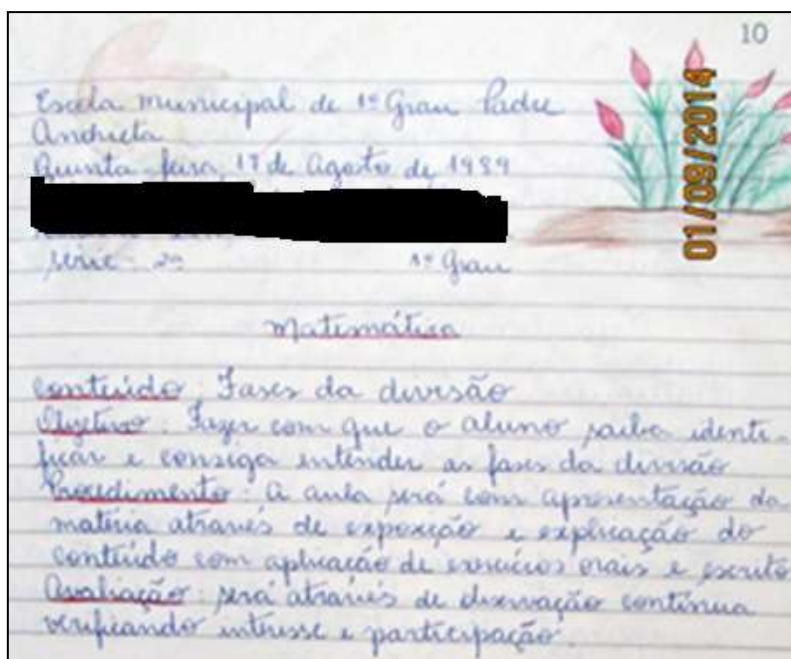 10
Escola municipal de 1º Grau Padre
Anchieta
Quinta-feira, 17 de Agosto de 1989
série: 2ª 1º Grau
Matemática
Conteúdo: Fases da divisão
Objetivo: Fazer com que o aluno saiba identi-
ficar e consiga entender as fases da divisão
Procedimento: A aula será com apresentação da
matéria através de exposição e explicação do
conteúdo com aplicação de exercícios orais e escrito
Avaliação: será através de observação contínua
verificando interesse e participação.
01/09/2014